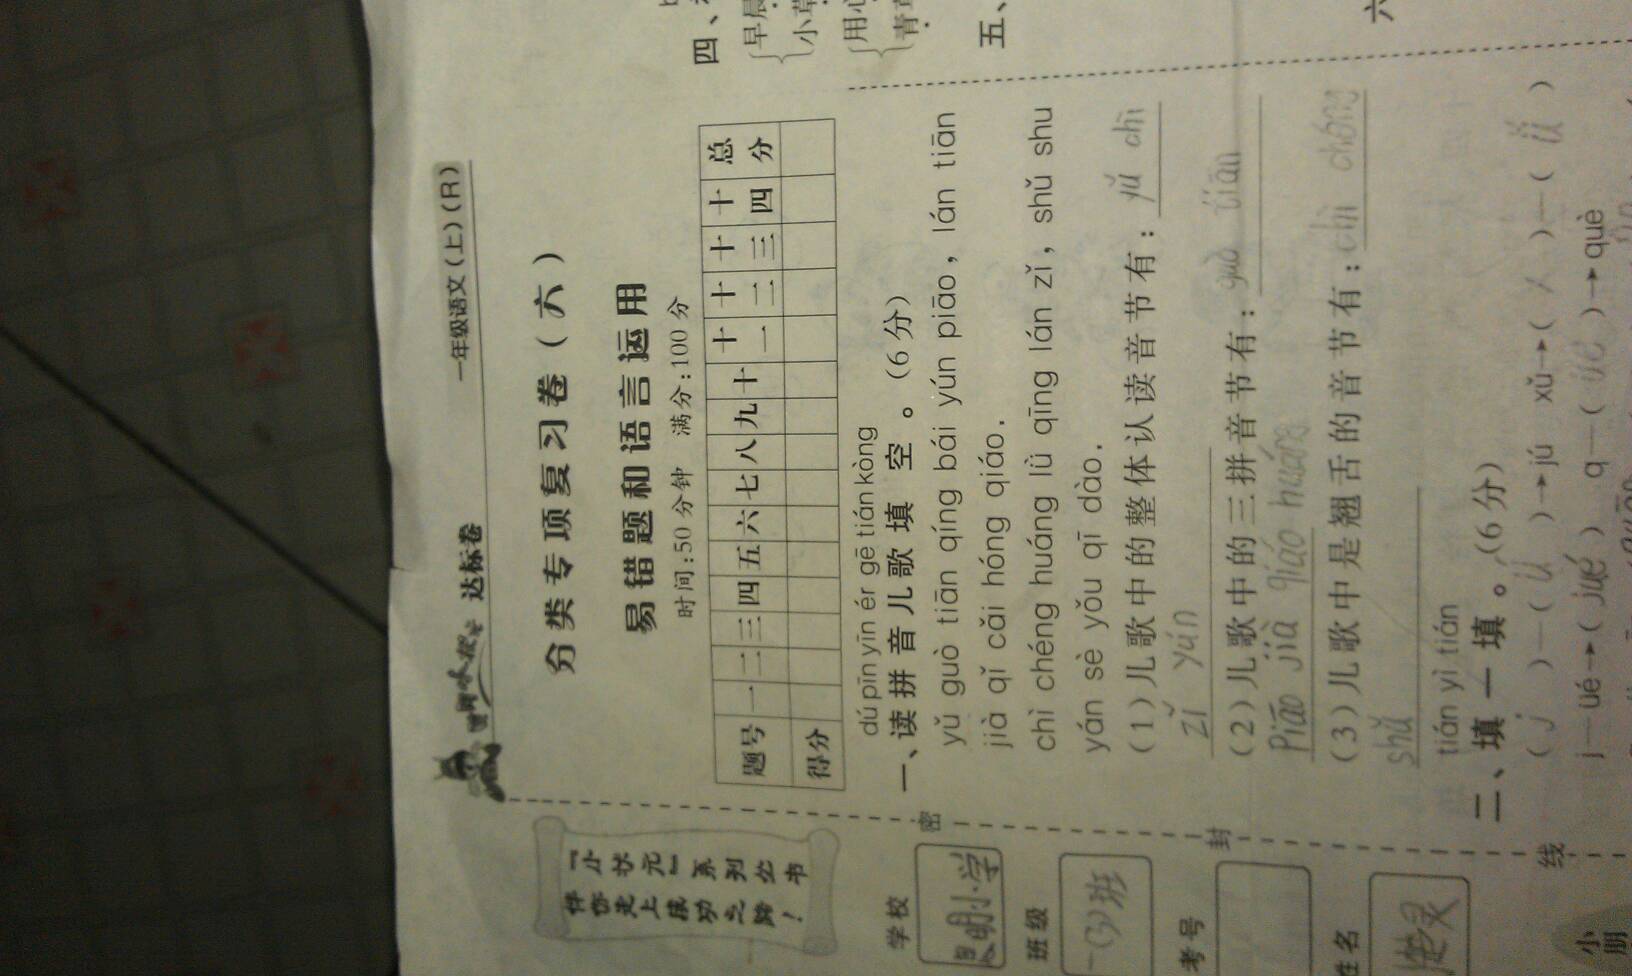 一年级语文(上)(R)
黄冈小状元 达标卷
分类专项复习卷(六)
易错题和语言运用
时间:50分钟 满分:100分
题号 一 二 三 四 五 六 七 八 九 十 十一 十二 十三 十四 总分
得分
dú pīn yīn ér gē tián kòng
一、读拼音儿歌填空。(6分)
yǔ guò tiān qíng bái yún piāo, lán tiān
jià qǐ cǎi hóng qiáo.
chì chéng huáng lǜ qīng lán zǐ, shǔ shu
yán sè yǒu qī dào.
(1)儿歌中的整体认读音节有: yǔ chì
zǐ yún
(2)儿歌中的三拼音节有: guò tiān
piāo jià qiáo huáng
(3)儿歌中是翘舌的音节有: chì chéng
shǔ
tián yì tián
二、填一填。(6分)
( j )—( ü )→jú xǔ→( x )—( ǚ )
j—üé→( jué ) q—( üè )→què
『小状元』系列丛书
伴你走上成功之路!
学校 明小学
班级 一(3)班
考号
姓名
密
封
线
小朋
四、
早晨
小草
用心
青草
五、
六